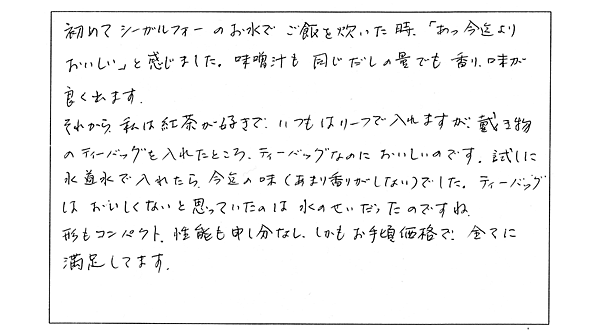 初めてシーガルフォーのお水でご飯を炊いた時、「あっ今迄より
おいしい」と感じました。味噌汁も同じだしの量でも香り、味が
良く出ます。
それから、私は紅茶が好きで、いつもはリーフで入れますが、戴き物
のティーバッグを入れたところ、ティーバッグなのにおいしいのです。試しに
水道水で入れたら、今迄の味（あまり香りがしない）でした。ティーバッグ
はおいしくないと思っていたのは水のせいだったのですね。
形もコンパクト、性能も申し分なし、しかもお手頃価格で、全てに
満足してます。